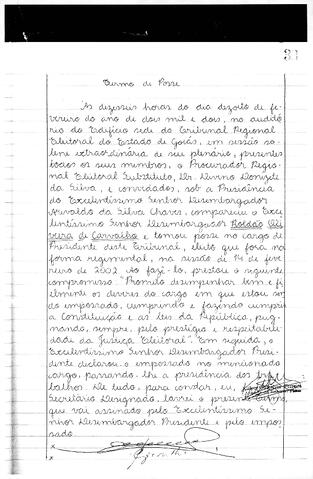 31
Termo de Posse
Às dezesseis horas do dia dezoito de fe-
vereiro do ano de dois mil e dois, no auditó-
rio do Edifício sede do Tribunal Regional
Eleitoral do Estado de Goiás, em sessão so-
lene extraordinária de seu plenário, presentes
todos os seus membros, o Procurador Regio-
nal Eleitoral Substituto, Dr. Divino Donizete
da Silva, e convidados, sob a Presidência
do Excelentíssimo Senhor Desembargador
da Silva Chaves, compareceu o Exce-
lentíssimo Senhor Desembargador Roldão
de Carvalho e tomou posse no cargo de
Presidente deste Tribunal, eleito que fora na
forma regimental, na sessão de 14 de feve-
reiro de 2002. Ao fazê-lo, prestou o seguinte
compromisso: "Prometo desempenhar bem e fi-
elmente os deveres do cargo em que estou sen-
do empossado, cumprindo e fazendo cumprir
a Constituição e as leis da República, pug-
nando, sempre, pelo prestígio e respeitabili-
dade da Justiça Eleitoral". Em seguida, o
Excelentíssimo Senhor Desembargador Presi-
dente declarou o empossado no mencionado
cargo, passando-lhe a presidência dos tra-
balhos. De tudo, para constar, eu,
Secretário Designado, lavrei o presente termo
que vai assinado pelo Excelentíssimo Se-
nhor Desembargador Presidente e pelo empos-
sado.